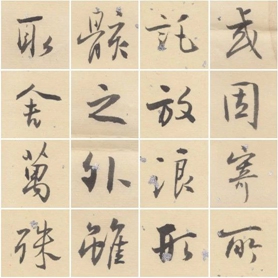 或因寄所
託放浪形
骸之外雖
取舍萬殊